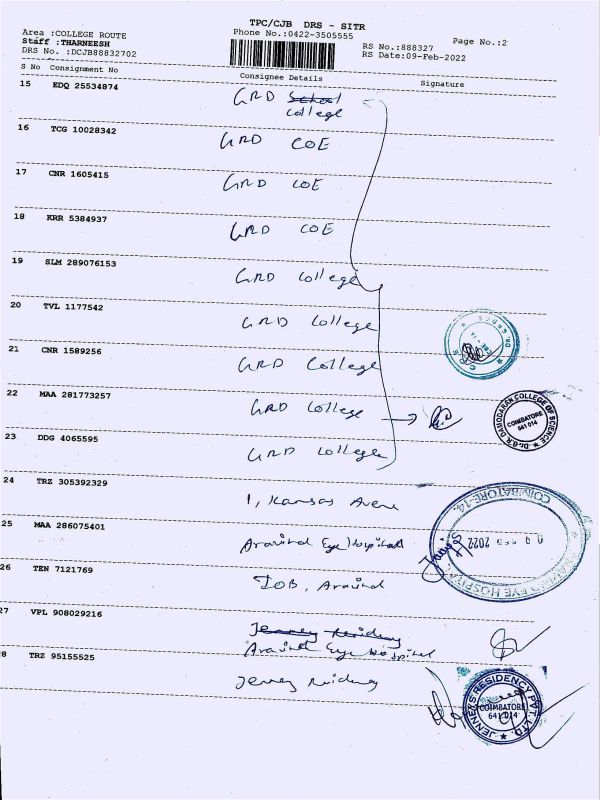 TPC/CJB DRS - SITR
Area :COLLEGE ROUTE
Phone No.:0422-3505555
Staff :THARNEESH
RS No.:888327
Page No.:2
DRS No. :DCJB88832702
RS Date:09-Feb-2022
S No Consignment No
Consignee Details
Signature
15 EDQ 25534874 GRD School
College
16 TCG 10028342 GRD COE
17 CNR 1605415 GRD COE
18 KRR 5384937 GRD COE
19 SLM 289076153 GRD College
20 TVL 1177542 GRD College
21 CNR 1589256 GRD College
22 MAA 281773257 GRD College
Dr.G.R. DAMODARAN COLLEGE OF SCIENCE
COIMBATORE
641 014
23 DDG 4065595 GRD College
24 TRZ 305392329 1, Kansas
COIMBATORE-14.
25 MAA 286075401 Aravind Eye Hospital
2022
EYE HOSPITAL
26 TEN 7121769 IOB, Aravind
27 VPL 908029216
Aravind Eye Hospital
8 TRZ 95155525 Jenney
JENNEYS RESIDENCY PVT. LTD.
COIMBATORE
641 014